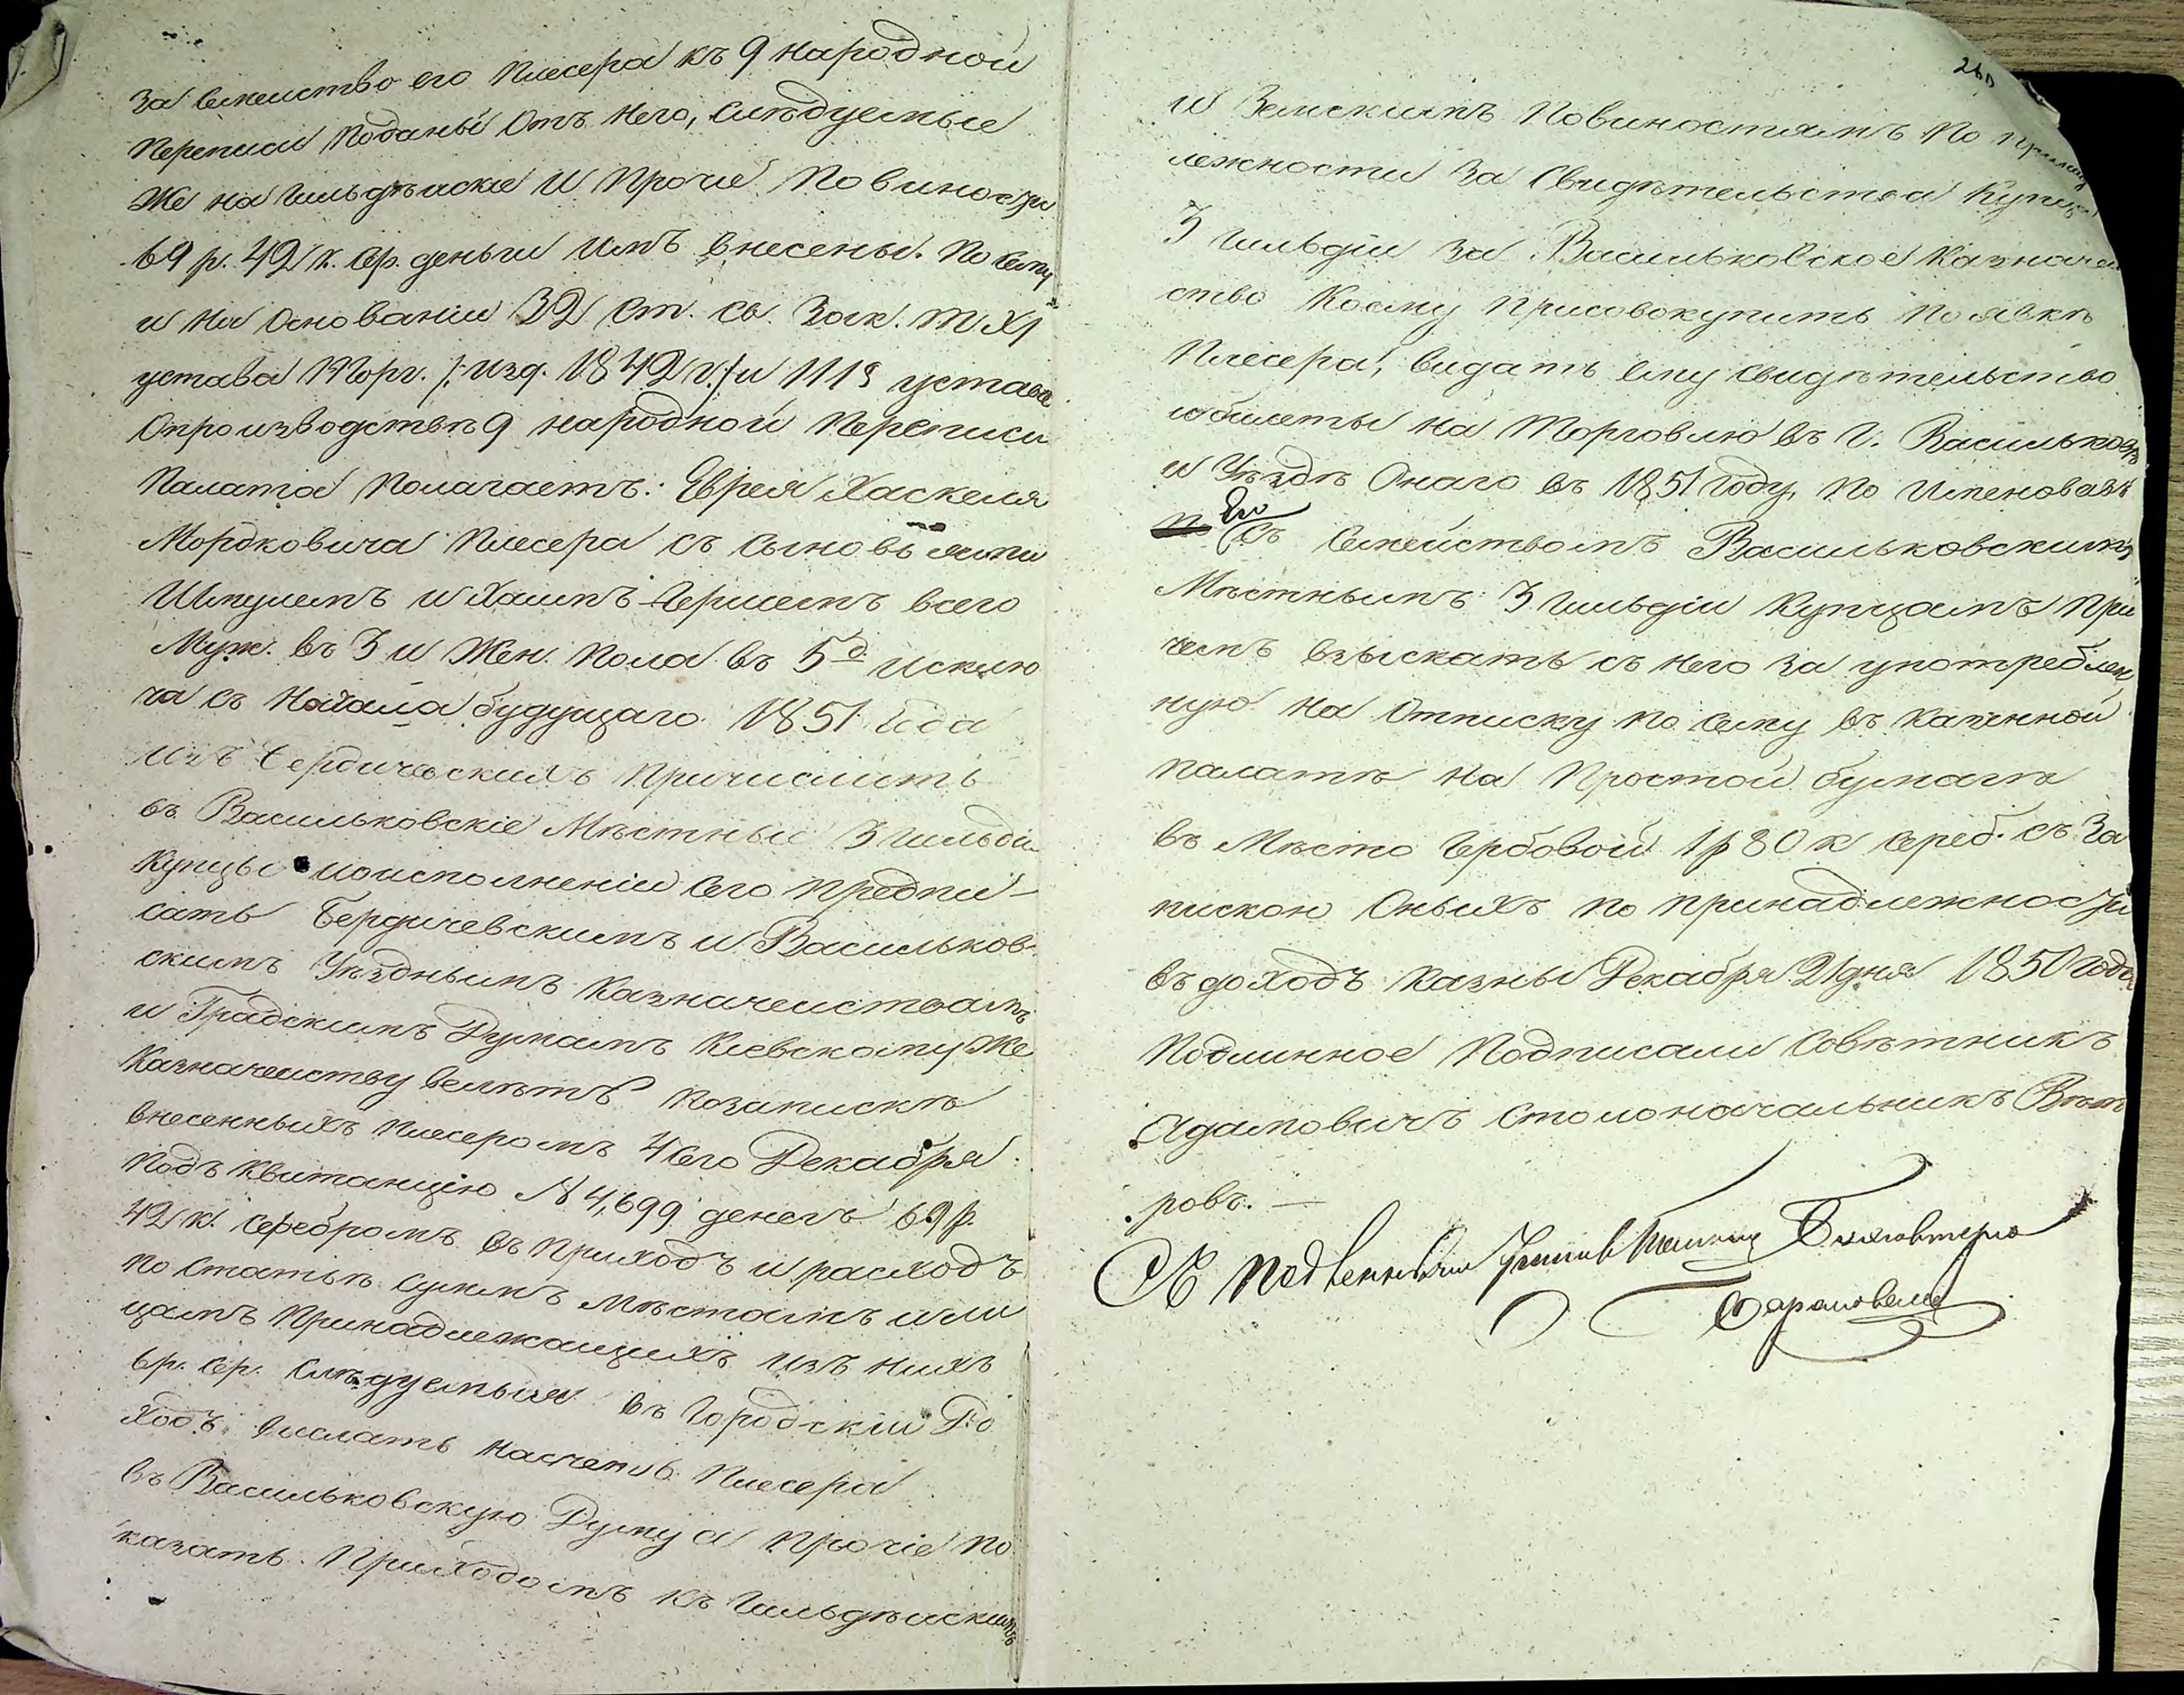 за семейство его Плесера къ 9 народной
переписи поданы отъ него, слѣдуемые
же на гильдѣйскіе и прочіе повиности
69 р. 42 к. сер. деньги имъ внесены. По сему
и на основаніи 32 ст. св. Зак. т XI
устава Торг. /:изд. 1842 г:/ и 111§ устава
опроизводствѣ 9 народной переписи
Палата полагаетъ: Еврея Хаскеля
Мордковича Плесера съ сыновьями
Шмулемъ и Хаимъ-Гершемъ всего
Муж. въ 3 и Жен. пола въ 5 д. исклю
ча съ начала будущаго 1851 года
изъ Бердичевскихъ причислить
въ Васильковскіе Мѣстные 3 гильдіи
купцы иоисполненіи сего предпи-
сать Бердичевскимъ и Васильков-
скимъ Уѣзднымъ Казначействамъ
и Градскимъ Думамъ Кіевскому же
Казначейству велѣть позапискѣ
внесенныхъ Плесеромъ 4 сего Декабря
подъ квитанцію № 4,699 денегъ 69 р.
42 к. серебромъ въ приходъ и расходъ
по статьѣ суммъ мѣстамъ и ли
цамъ принадлежащихъ изъ нихъ
6 р. сер. слѣдуемыя въ городскій до
ходъ насчетъ Плесера
въ Васильковскую Думу а прочіе по
казать приходомъ къ гильдѣйскимъ
и Земскимъ повиностямъ по
лежности за свидѣтельства
3 гильдіи за Васильковское Казначей
ство коему присовокупить по явкѣ
Плесера, видать ему свидѣтельство
и билеты на торговлю въ г. Васильковѣ
и Уѣздѣ онаго въ 1851 году, по
Его
съ семействомъ Васильковскимъ
Мѣстнымъ 3 гильдіи купцамъ при
чемъ взыскать съ него за употреблен
ную на отписку по сему въ казенной
палатѣ на простой бумагѣ
въ мѣсто гербовой 1 р 80 к сереб. съ за
пискою оныхъ по принадлежности
въ доходъ казны Декабря 21 дня 1850 года
Подлинное подписали Совѣтникъ
Адамовичъ Столоначальникъ
ровъ. —
Съ подленнымъ Бухгавтера